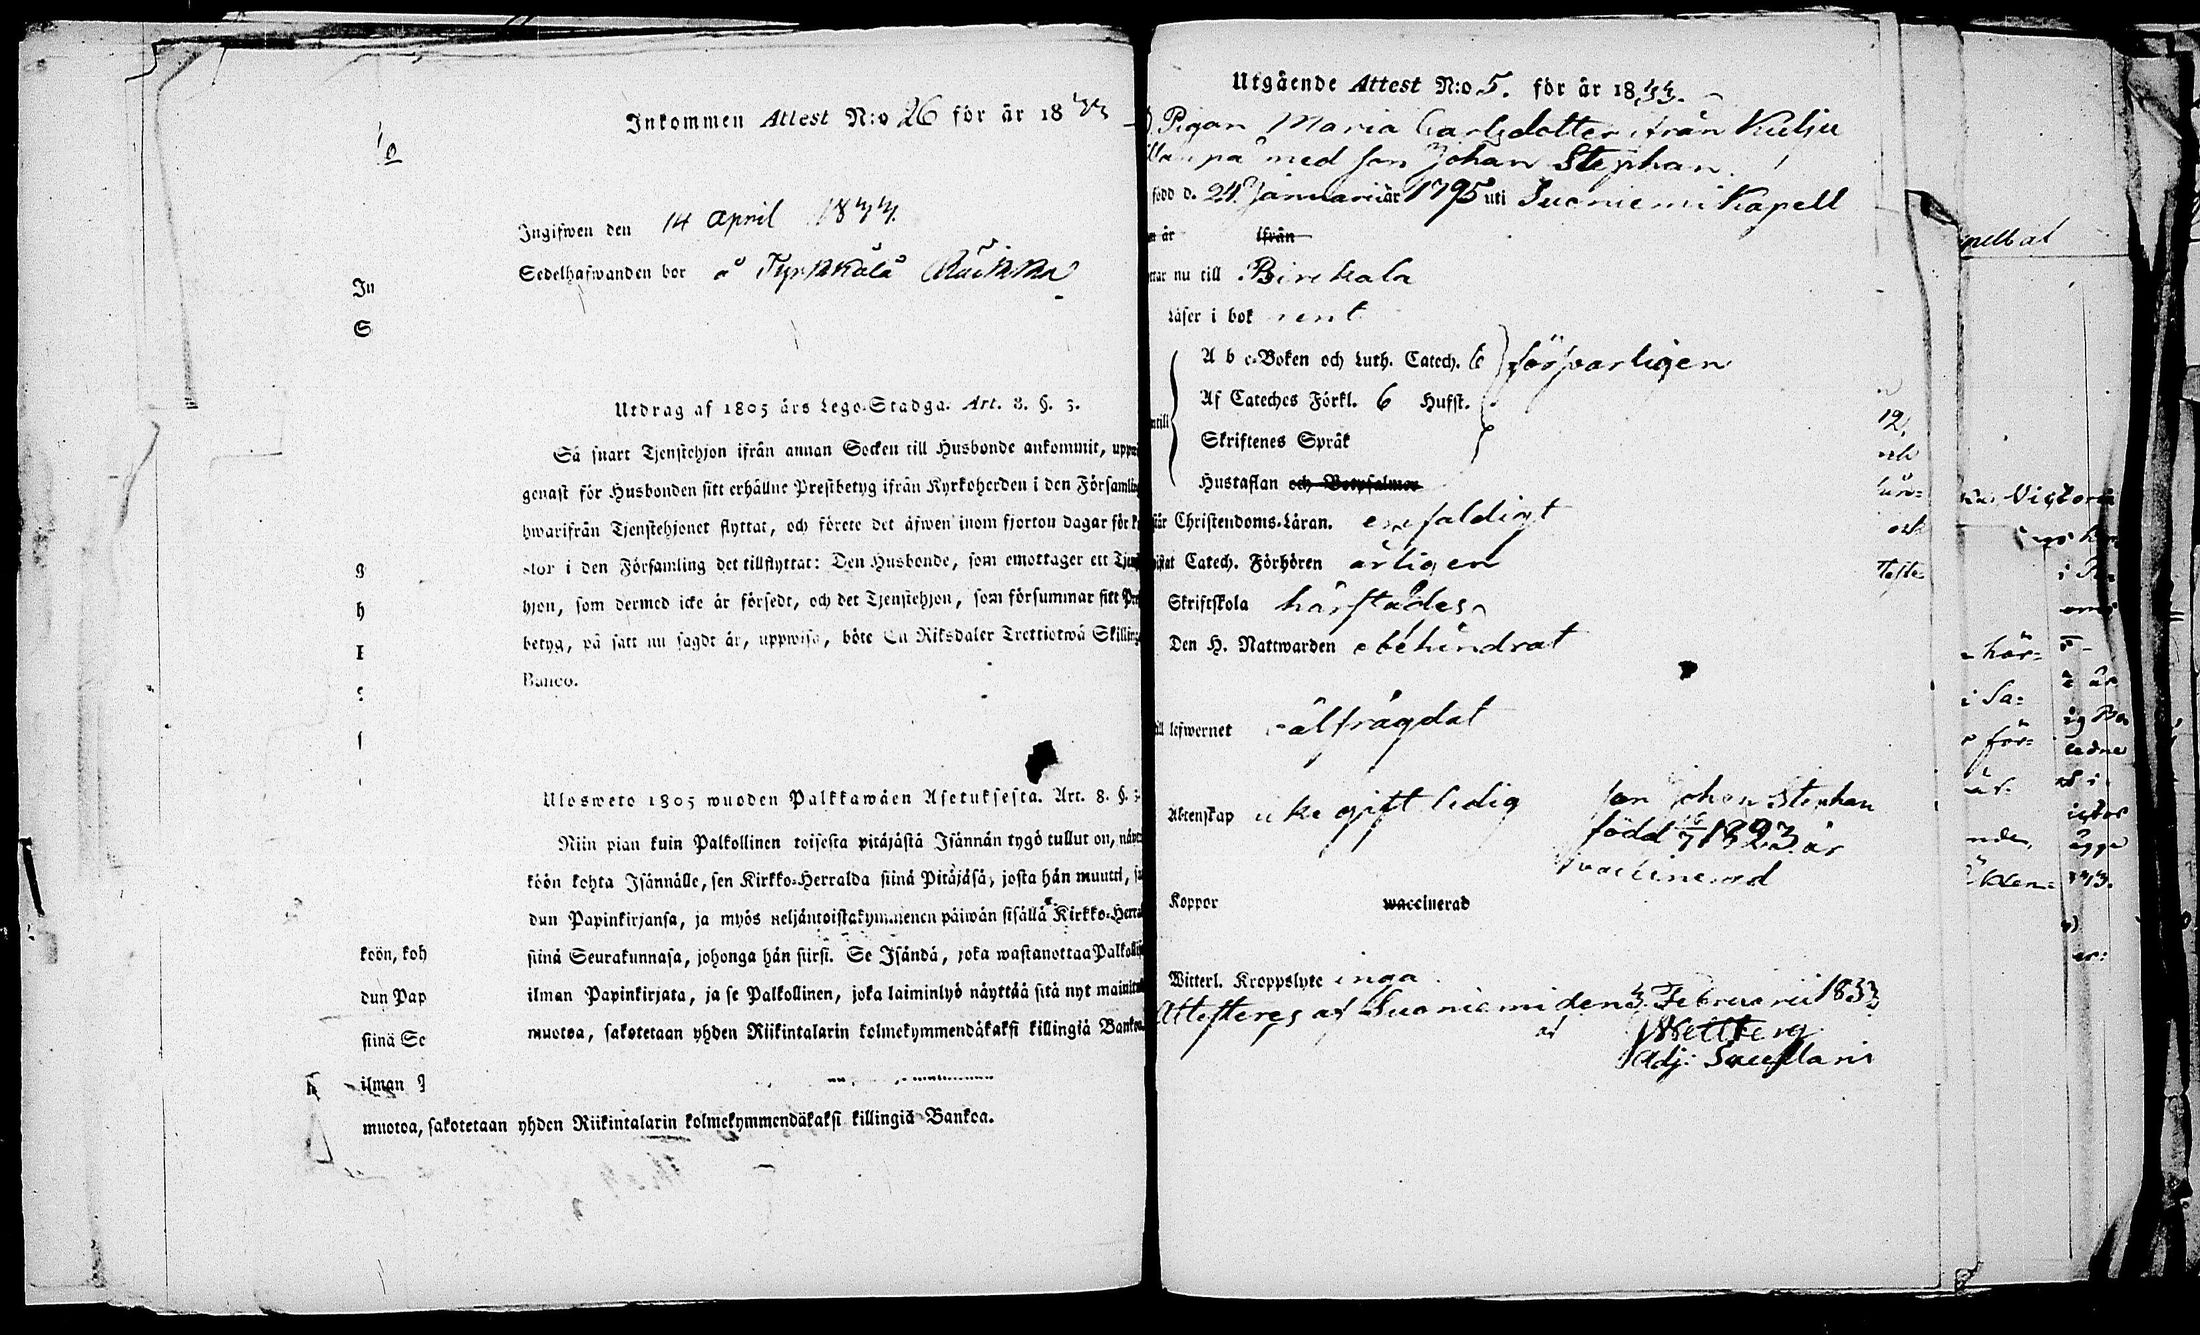 Inkommen Attest N:o 26 för är 1833
Ingifwen den 14 april 1833.
Sedelhafwanden bor å Tyrkkölä
In
S
Utdrag af 1805 års Lego-Stadga. Art. 8. §. 5.
Så snart Tjenstehjon ifrån annan Socken till Husbonde ankommit,
genast för Husbonden sitt erhållne Prestbetyg ifrån Kyrkoherden i den Församling
hwarifrån Tjenstehjonet flyttat, och förete det äfwen inom fjorton dagar för
i den Församling det tillflyttat: Den Husbonde, som emottager ett
hjon, som dermed icke är försedt, och det Tjenstehjon, som försummar sitt
betyg, på sätt nu sagdt är, uppwisa, böte En Riksdaler Trettiotwå Skilling
Banco.
Ulosweto 1805 wuoden Palkkawäen Asetuksesta. Art. 8. §. 5.
Niin pian kuin Palkollinen toisesta pitäjästä Isännän tygö tullut on,
köön kohta Isännälle, sen Kirkko-Herralda siinä Pitäjäsä, josta hän muutti,
dun Papinkirjansa, ja myös neljäntoistakymmenen päiwän sisällä Kirkko-
siinä Seurakunnasa, johonga hän siirsi. Se Isändä, joka wastanottaa
ilman Papinkirjata, ja se Palkollinen, joka laiminlyö näyttää sitä nyt
muotoa, sakotetaan yhden Riikintalarin kolmekymmendäkaksi killingiä
koön, koh
dun Pap
siinä Se
ilman
muotoa, sakotetaan yhden Riikintalarin kolmekymmendäkaksi killingiä Bankoa.
Utgäende Attest N:o 5. för är 1833.
Pigan Maria Carlsdotter ifrån Kulju
på med son Johan Stephan.
född d. 24 Januarii är 1795 uti Suoniemi Kapell
är Ifrån
nu till Birckala
Läser i bok rent
A b c-Boken och Luth. Catech. 6 försvarligen
Af Cateches Förkl. 6 Hufst.
Skriftenes Språk
Hustaflan och Botpsalmer
Christendoms-Läran. enfaldigt
Catech. Förhören årligen
Skriftskola härstädes
Den H. Nattwarden obehindrat
lefwernet wälfrägdat
Äktenskap icke gift ledig
Son Johan Stephan
född 16/7 1823 är
vaccinerad
Koppor waccinerad
Witterl. Kroppslyte inga
Attesteras af Suoniemi den 3 Februarii 1833
af Wettberg
Adj: Sacellani